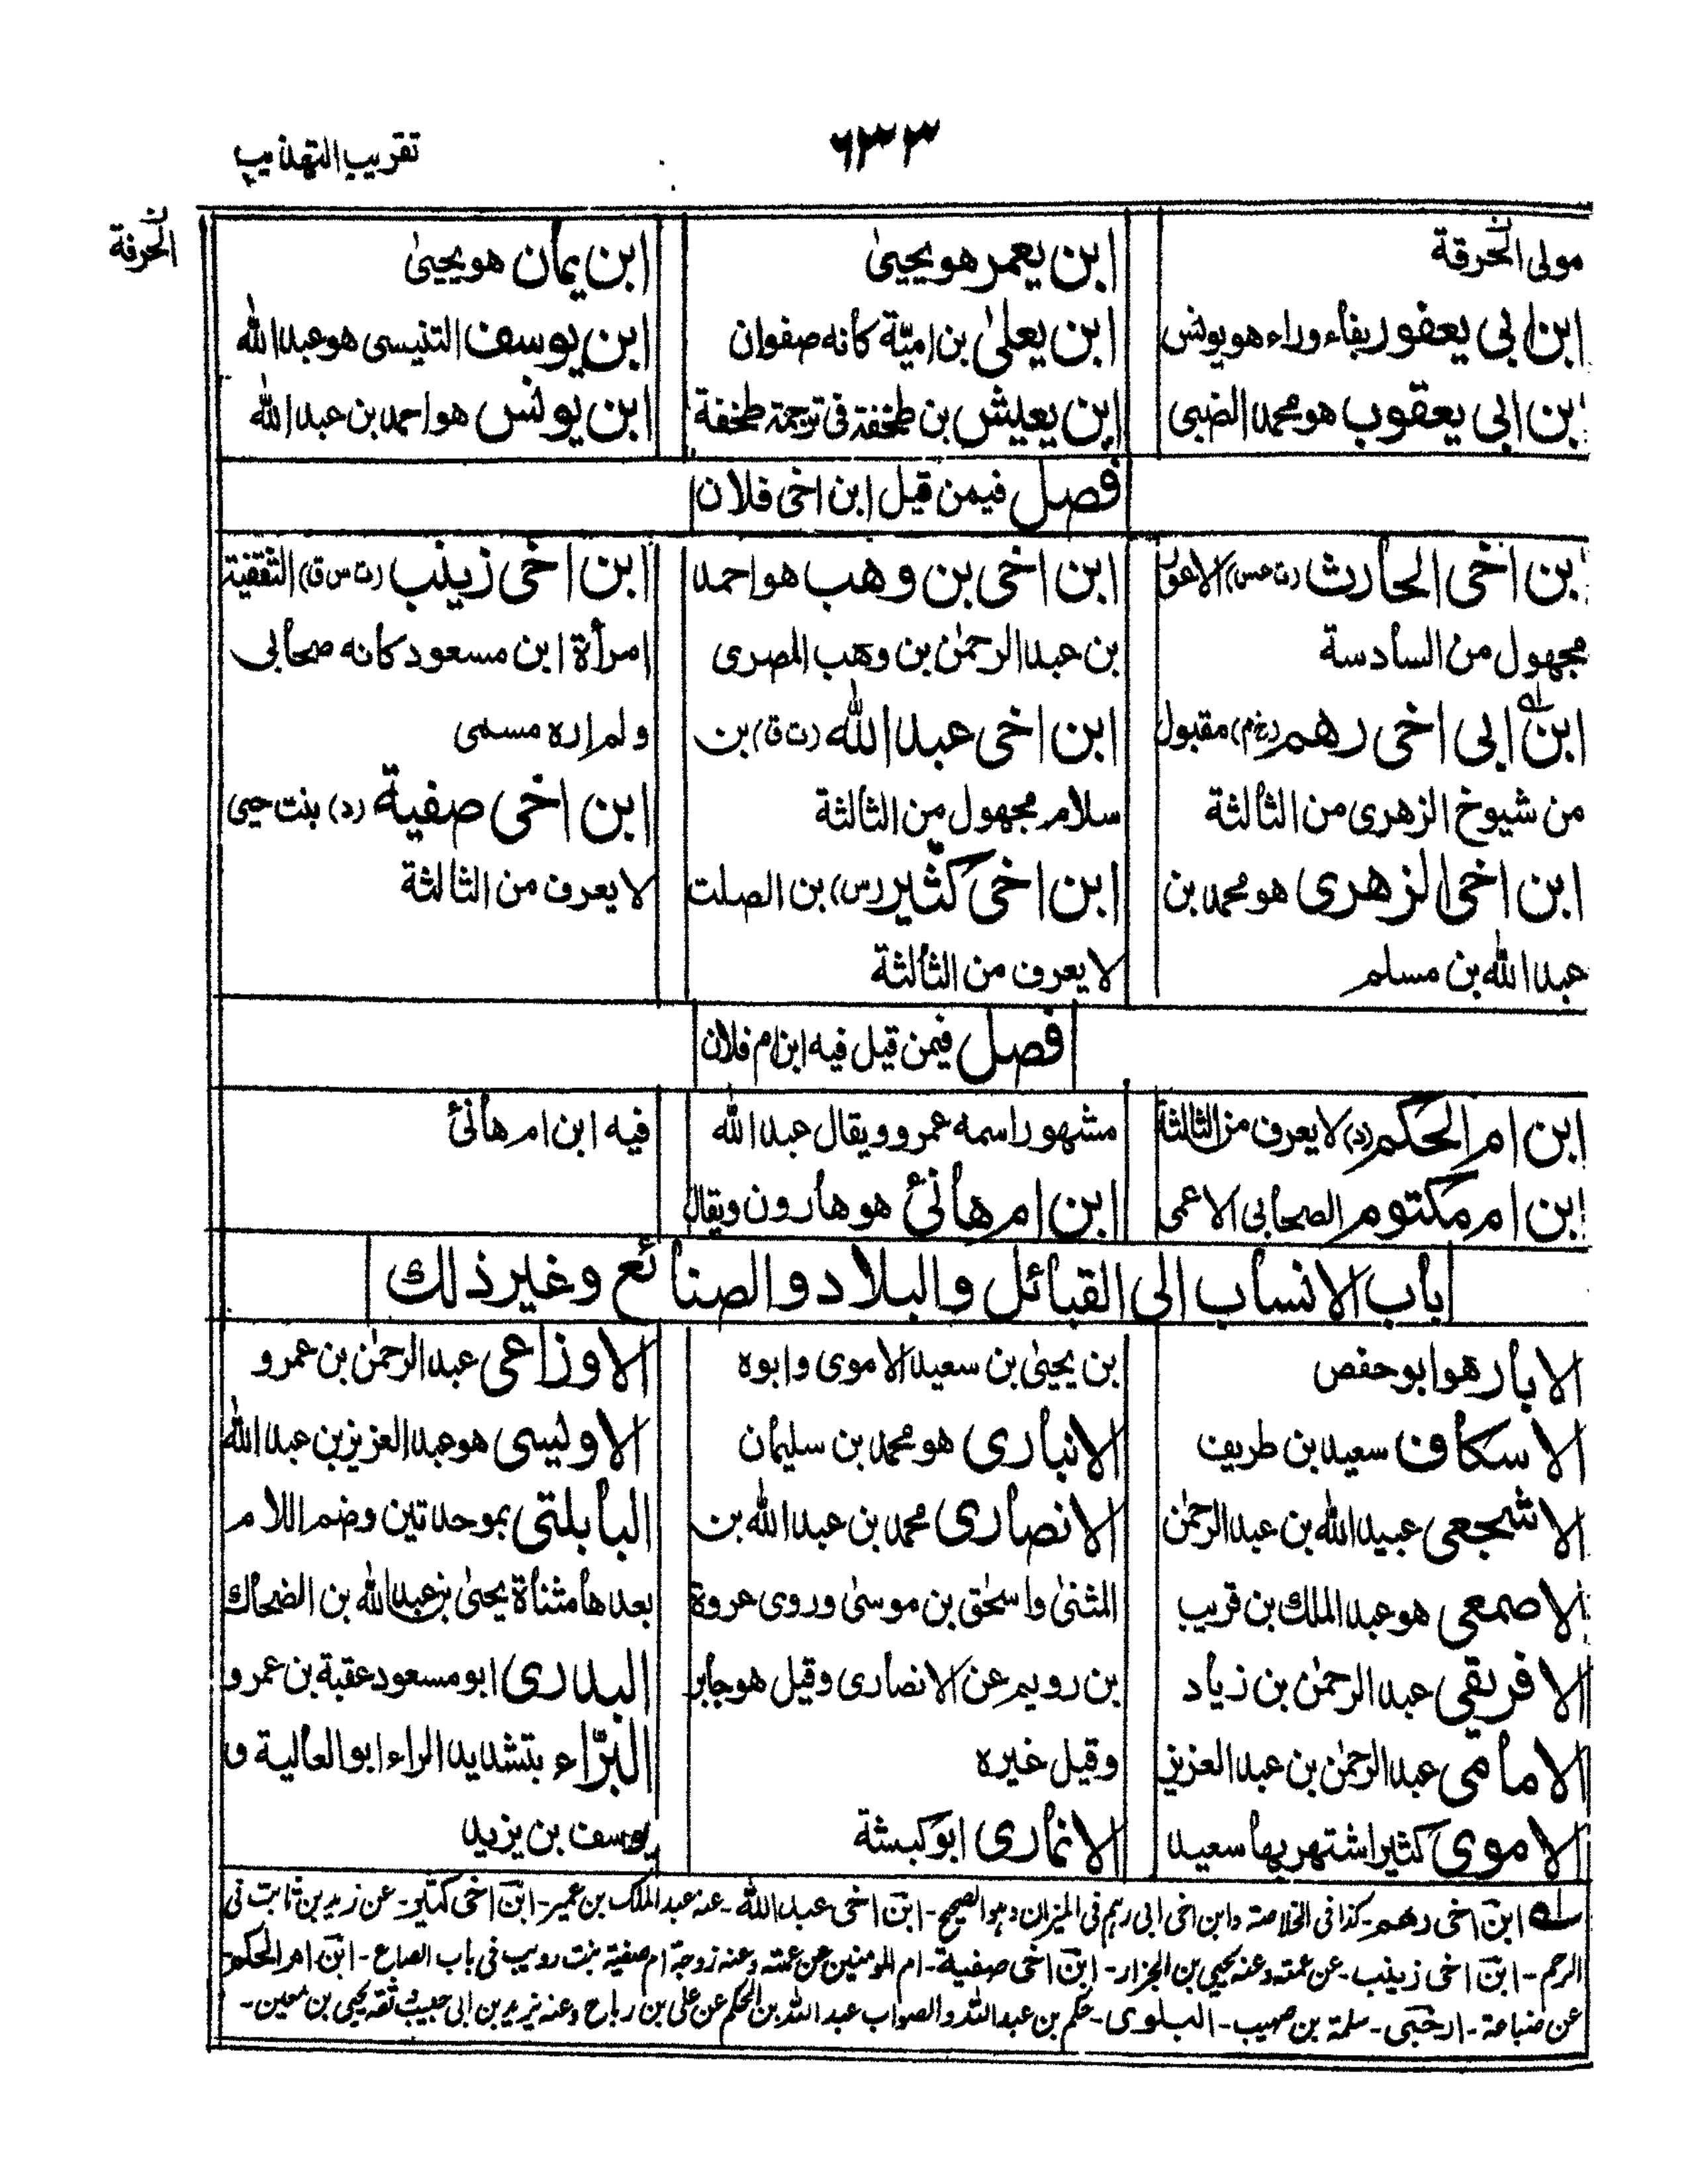 ٦٣٣
تقريب التهذيب
الحرفة
مولى الحرقة
ابن ابى يعفور بفاء وراء هو يونس
بن ابى يعقوب هو محمد الضبى
ابن يعمر هو يحيىٰ
ابن يعلىٰ بن اميّة كأنه صفوان
ابن يعيش بن طخفة فى ترجمة طخفة
ابن يمان هو يحيىٰ
ابن يوسف التنيسى هو عبد الله
ابن يونس هو احمد بن عبد الله
فصل فيمن قيل ابن اخى فلان
بن اخى الحارث (ت عس) الاعور
مجهول من السادسة
ابن ابى اخى رهم (بخ) مقبول
من شيوخ الزهرى من الثالثة
ابن اخى الزهرى هو محمد بن
عبد الله بن مسلم
ابن اخى بن وهب هو احمد
بن عبد الرحمٰن بن وهب المصرى
ابن اخى عبد الله (ت ق) بن
سلام مجهول من الثالثة
ابن اخى كثير (س) بن الصلت
لا يعرف من الثالثة
ابن اخى زينب (ت س ق) الثقفية
امرأة ابن مسعود كأنه صحابى
ولم اره مسمى
ابن اخى صفية (د) بنت حيى
لا يعرف من الثالثة
فصل فيمن قيل فيه ابن ام فلان
ابن ام الحكم (د) لا يعرف من الثالثة
ابن ام مكتوم الصحابى الاعمى
مشهور اسمه عمرو ويقال عبد الله
ابن ام هانئ هو هارون ويقال
فيه ابن ام هانئ
باب الانساب الى القبائل والبلاد والصنائع وغير ذلك
الابار هو ابو حفص
الاسكاف سعيد بن طريف
الاشجعى عبيد الله بن عبد الرحمٰن
الاصمعى هو عبد الملك بن قريب
الافريقى عبد الرحمٰن بن زياد
الامامى عبد الرحمٰن بن عبد العزيز
الاموى كثير اشتهر بها سعيد
بن يحيىٰ بن سعيد الاموى وابوه
الانبارى هو محمد بن سليمان
الانصارى محمد بن عبد الله بن
المثنىٰ واسحٰق بن موسىٰ وروى عروة
بن رويم عن الانصارى وقيل هو جابر
وقيل غيره
الانمارى ابو كبشة
الاوزاعى عبد الرحمٰن بن عمرو
الاويسى هو عبد العزيز بن عبد الله
البابلتى بموحدتين وضم اللام
بعدها مثناة يحيىٰ بن عبد الله بن الضحاك
البدرى ابو مسعود عقبة بن عمرو
البرّاء بتشديد الراء ابو العالية و
يوسف بن يزيد
له ابن اخى رهم - كذا فى الخلاصة وابن اخى ابى رهم فى الميزان وهو الصحيح - ابن اخى عبد الله - عنه عبد الملك بن عمير - ابن اخى كثير - عن زيد بن ثابت فى
الرجم - ابن اخى زينب - عن عمته وعنه يحيى بن الجزار - ابن اخى صفية - ام المومنين عن عمته وعنه زوجة ام صفية بنت رويب فى باب الصاع - ابن ام الحكم
عن ضباعة - ارحبى - سلمة بن صهيب - البلوى - حكم بن عبد الله والصواب عبد الله بن الحكم عن على بن رباح وعنه يزيد بن ابى حبيب ثقه يحيى بن معين -